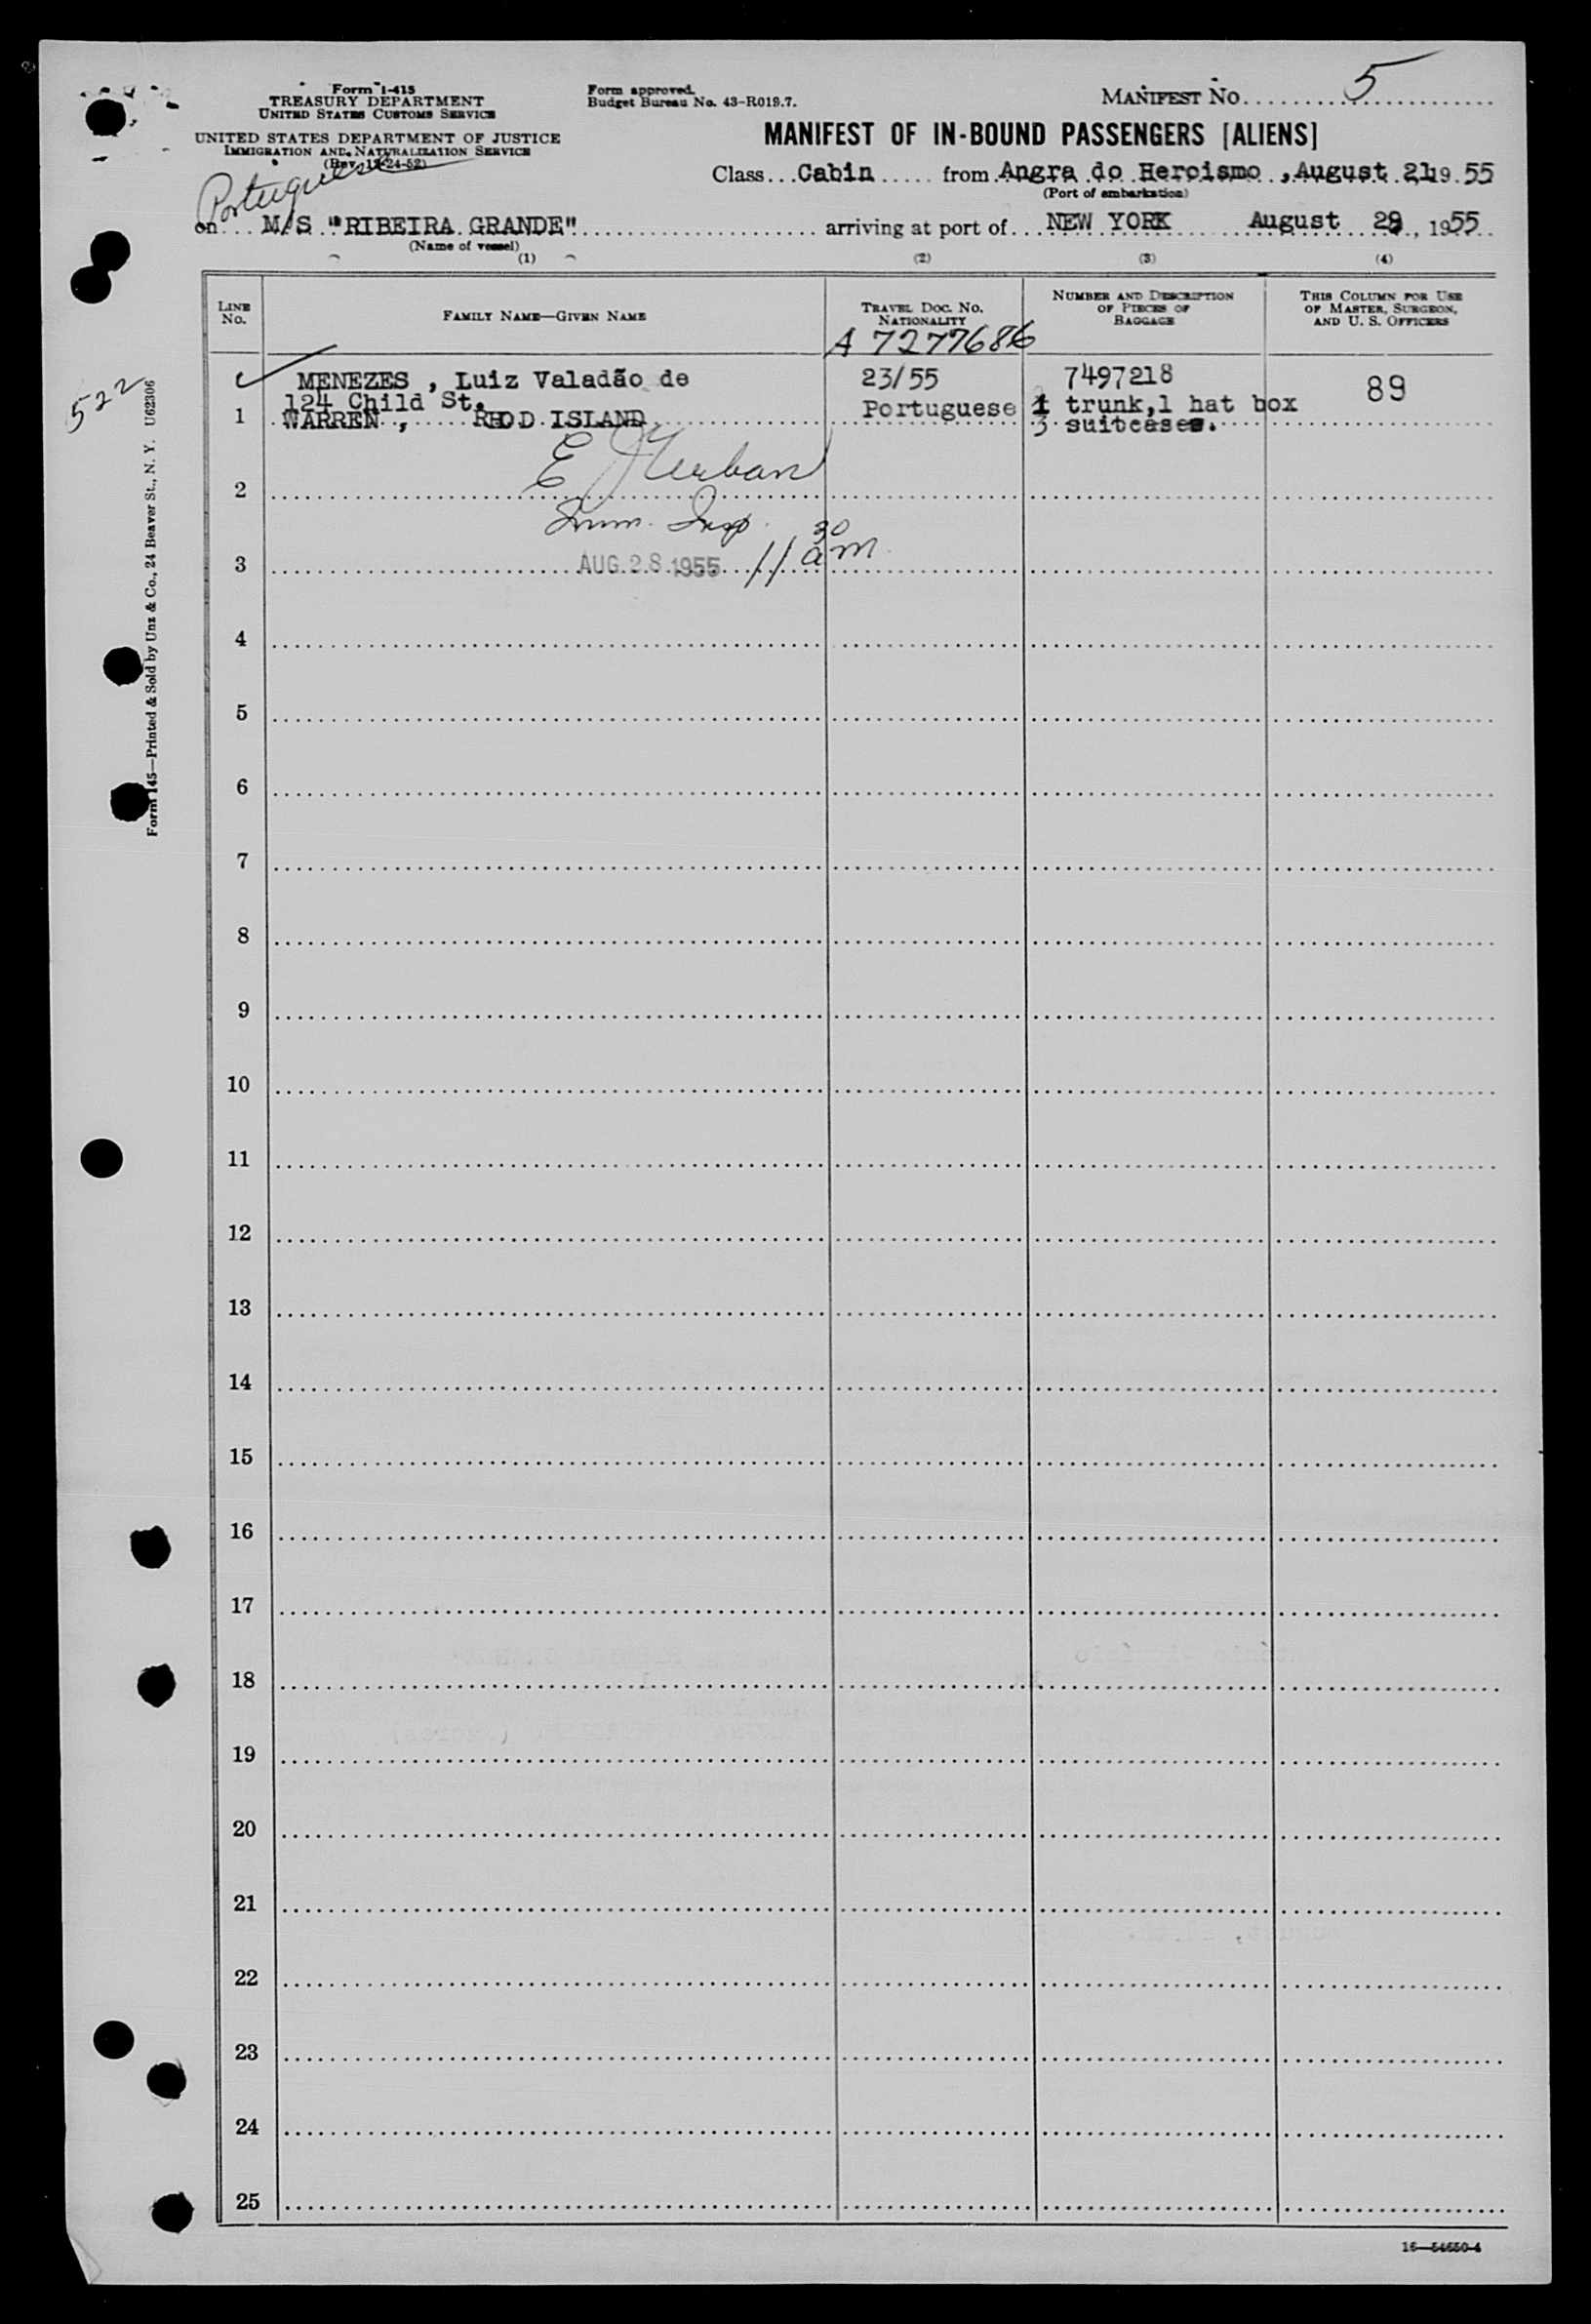 Form I-415
TREASURY DEPARTMENT
UNITED STATES CUSTOMS SERVICE
UNITED STATES DEPARTMENT OF JUSTICE
IMMIGRATION AND NATURALIZATION SERVICE
(Rev. 12-24-52)
Form approved.
Budget Bureau No. 43-R019.7.
MANIFEST NO. 5
MANIFEST OF IN-BOUND PASSENGERS [ALIENS]
Class Cabin from Angra do Heroismo , August 21 19 55
(Port of embarkation)
Portuguese
on M/S "RIBEIRA GRANDE" arriving at port of NEW YORK August 28, 1955
(Name of vessel)
(1) (2) (3) (4)
LINE NO.
FAMILY NAME—GIVEN NAME
TRAVEL DOC. NO.
NATIONALITY
NUMBER AND DESCRIPTION
OF PIECES OF
BAGGAGE
THIS COLUMN FOR USE
OF MASTER, SURGEON,
AND U. S. OFFICERS
A 7277686
MENEZES , Luiz Valadão de 23/55 7497218 89
124 Child St. Portuguese 1 trunk,1 hat box
1 WARREN , RHOD ISLAND 3 suitcases.
E J Urban
2
Imm. Insp.
3 AUG 28 1955 11 30 am
4
5
6
7
8
9
10
11
12
13
14
15
16
17
18
19
20
21
22
23
24
25
16—54650-4
522
Form 145—Printed & Sold by Unz & Co., 24 Beaver St., N. Y. U62306